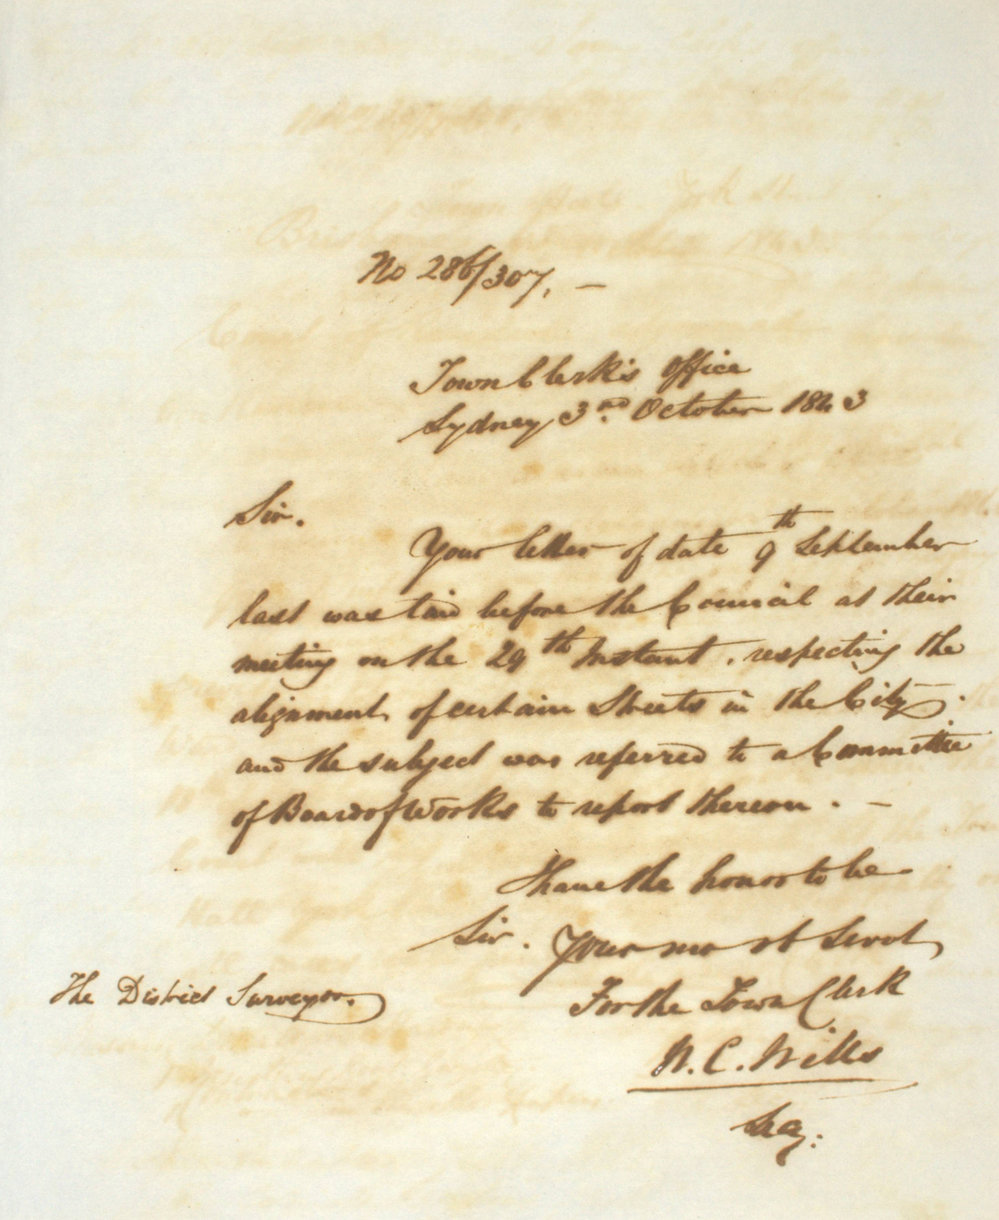 No 286/307. —
Town Clerk's Office
Sydney 3rd October 1843
Sir.
Your letter of date 9th September
last was laid before the Council at their
meeting on the 29th Instant. respecting the
alignment of certain Streets in the City.
and the subject was referred to a Committee
of Board of Works to report thereon. —
I have the honor to be
Sir. Your mo st Servt
For the Town Clerk
W. C. Wills
Secy:
The District Surveyor.